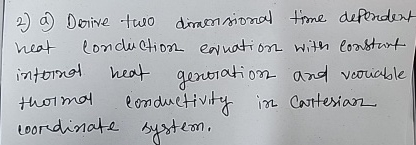 2) a) Derive two dimensional time dependent
heat conduction equation with constant
internal heat generation and variable
thermal conductivity in Cartesian
coordinate system.